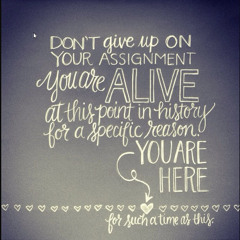 DON'T give up ON
YOUR ASSIGNMENT
you are ALIVE
at this point in history
for a specific reason.
YOU ARE
HERE
for such a time as this.